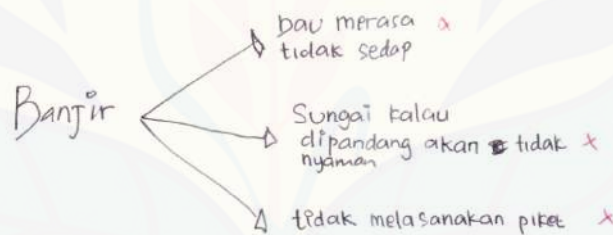 Banjir
bau merasa x
tidak sedap
Sungai kalau
dipandang akan tidak x
nyaman
tidak melasanakan piket x